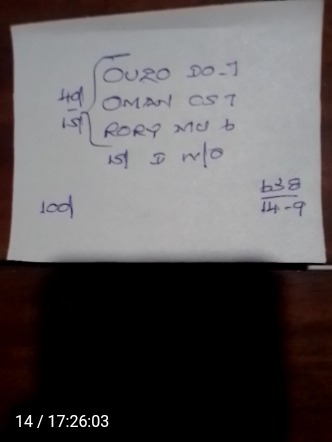 OUZO DO-7
49/ OMAN CS7
15/ RORY MU 6
15/ D N/O
100/
638
14-9
14 / 17:26:03